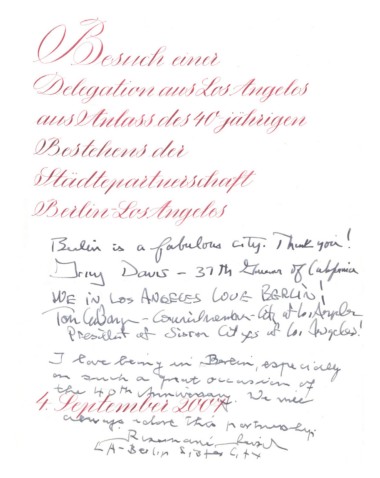 Besuch einer
Delegation aus Los Angeles
aus Anlass des 40 jährigen
Bestehens der
Städtepartnerschaft
Berlin-Los Angeles
Berlin is a fabulous city. Thank you!
Gray Davis - 37th Governor of California
WE IN LOS ANGELES LOVE BERLIN!
Tom LaBonge - Councilmember - City of Los Angeles
President of Sister Cities of Los Angeles!
I love being in Berlin, especially
on such a great occasion of
the 40th Anniversary. We will
4. September 2007
always adore this partnership.
LA-Berlin Sister City